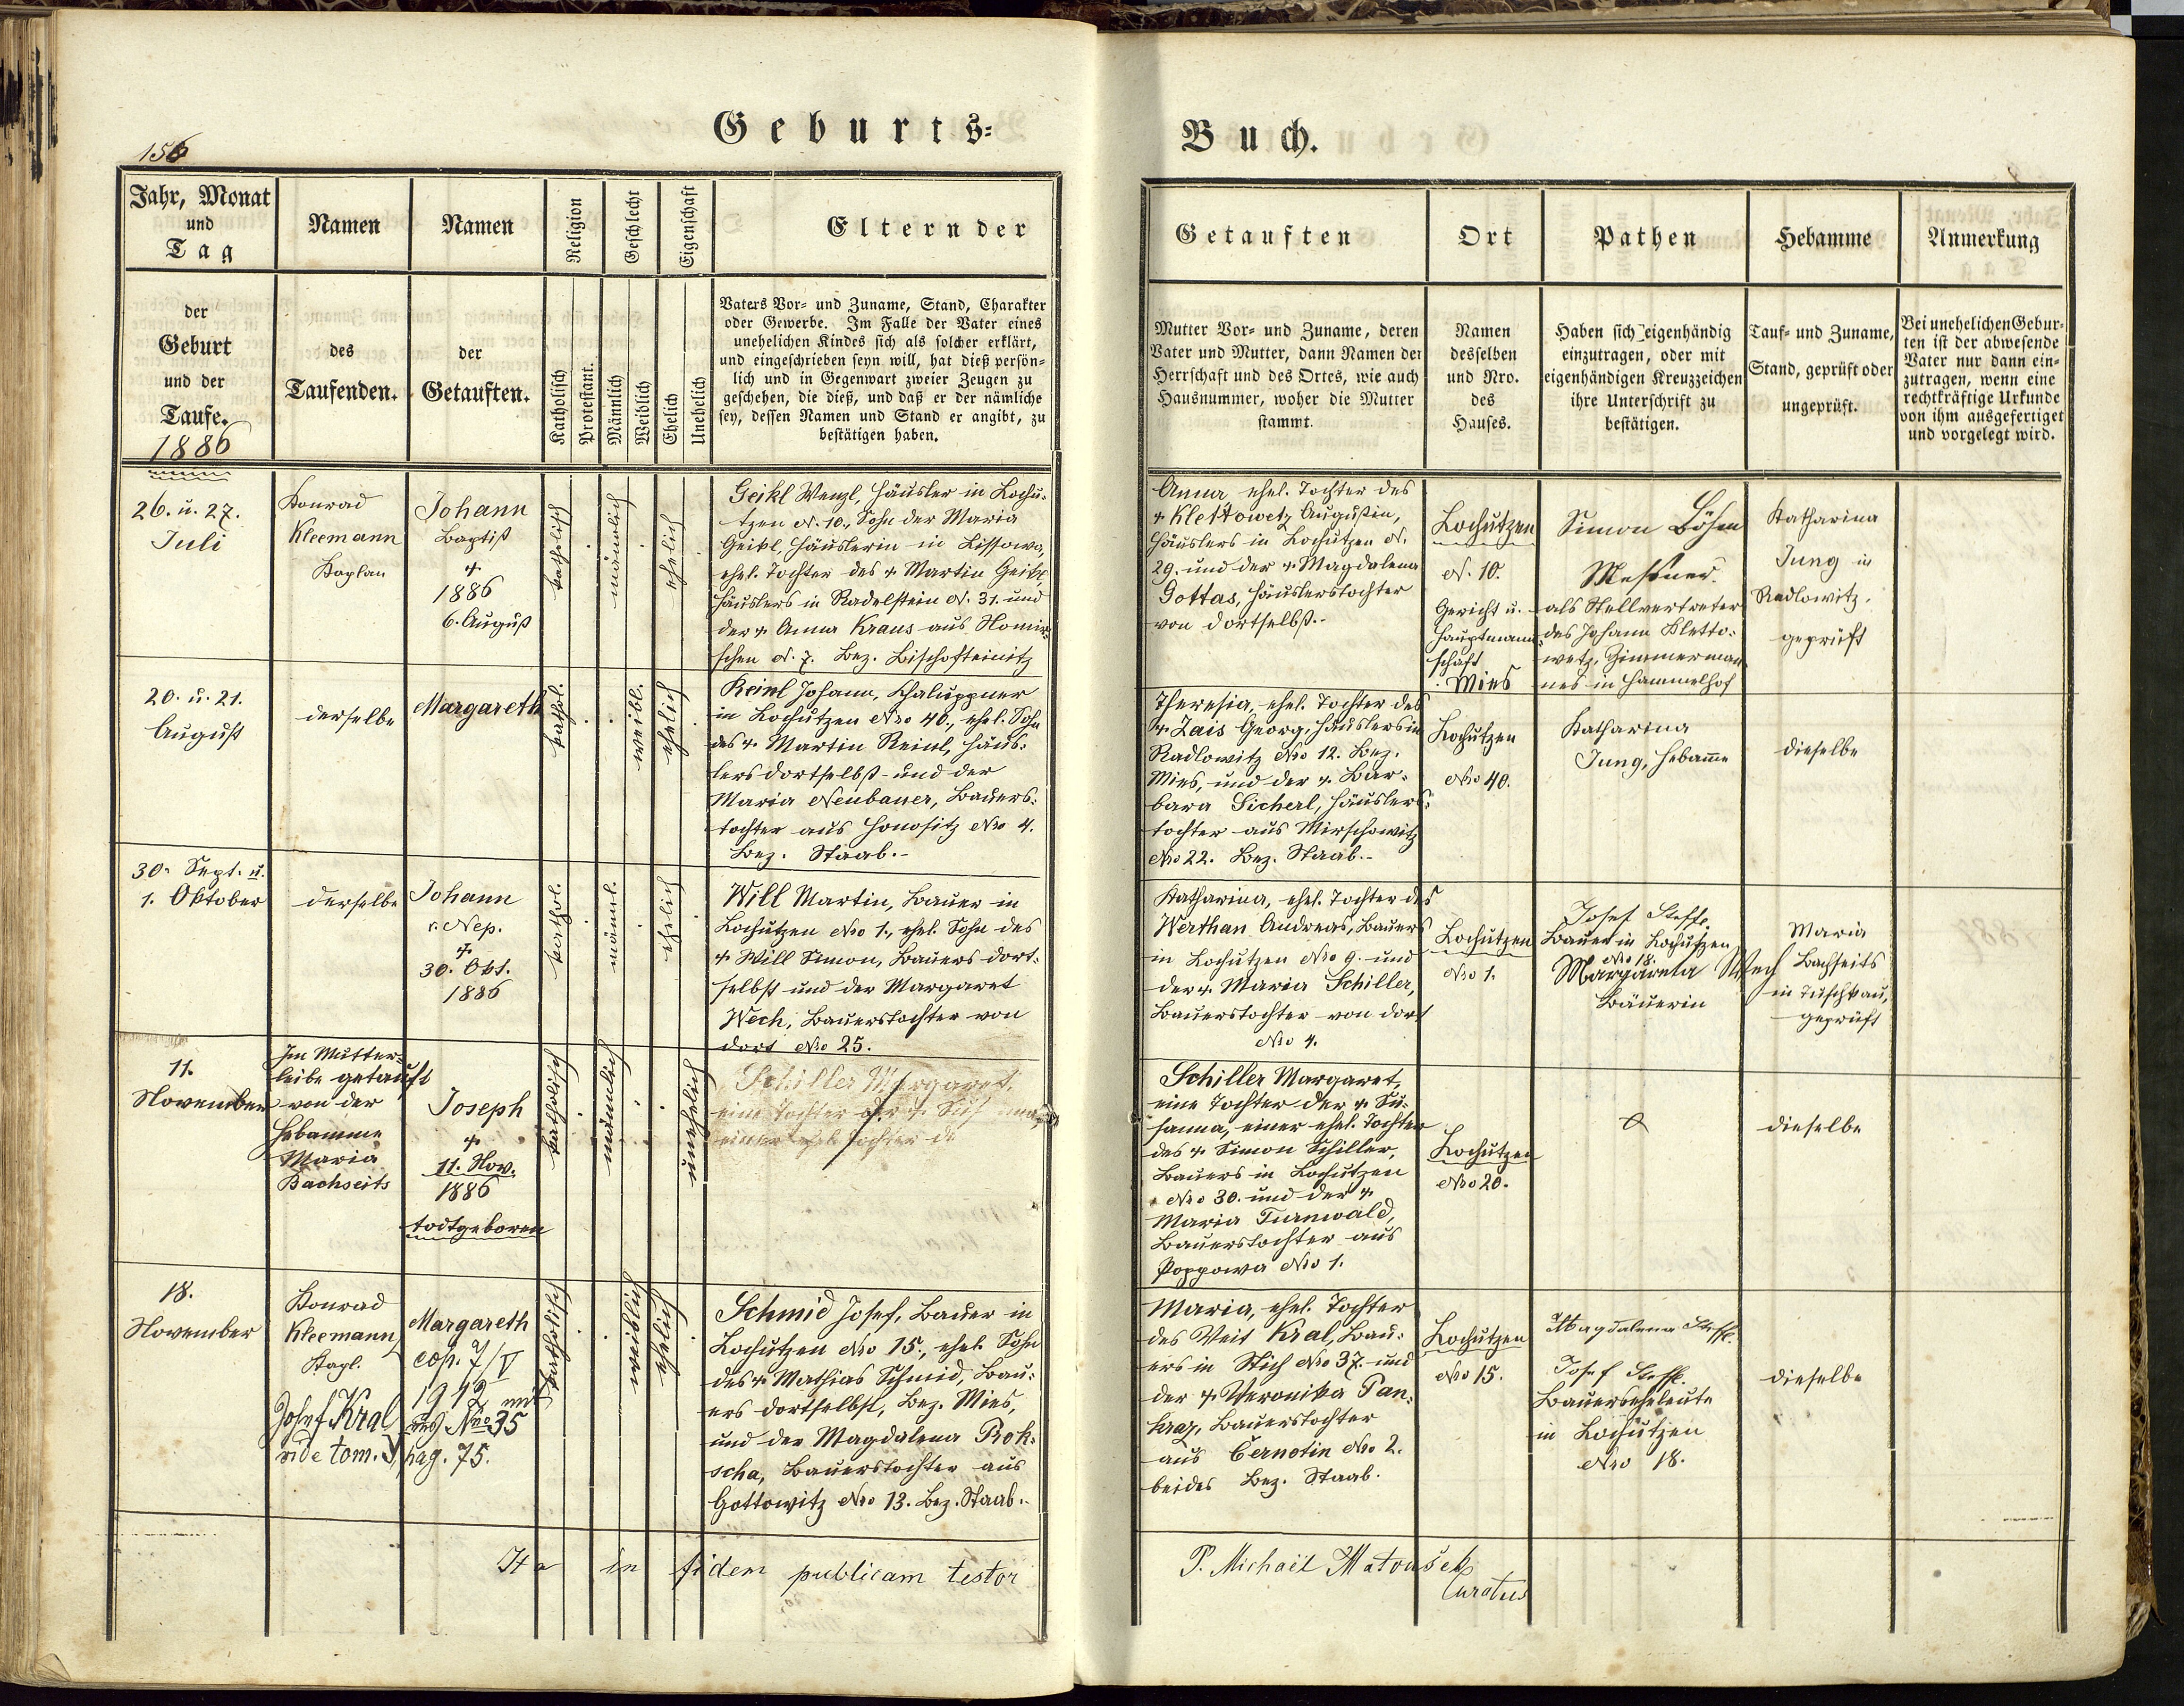 156
Geburts=
Buch.
Jahr, Monat
und
Tag
Namen
Namen
Religion
Geschlecht
Eigenschaft
Eltern der
der
Geburt
und der
Taufe.
1886
des
Taufenden.
der
Getauften.
Katholisch
Protestant.
Männlich
Weiblich
Ehelich
Unehelich
Vaters Vor= und Zuname, Stand, Charakter
oder Gewerbe. Im Falle der Vater eines
unehelichen Kindes sich als solcher erklärt,
und eingeschrieben seyn will, hat dieß persön=
lich und in Gegenwart zweier Zeugen zu
geschehen, die dieß, und daß er der nämliche
sey, dessen Namen und Stand er angibt, zu
bestätigen haben.
Getauften
Ort
Pathen
Hebamme
Anmerkung
Mutter Vor= und Zuname, deren
Vater und Mutter, dann Namen der
Herrschaft und des Ortes, wie auch
Hausnummer, woher die Mutter
stammt.
Namen
desselben
und Nro.
des
Hauses.
Haben sich eigenhändig
einzutragen, oder mit
eigenhändigen Kreuzzeichen
ihre Unterschrift zu
bestätigen.
Tauf= und Zuname,
Stand, geprüft oder
ungeprüft.
Bei unehelichen Gebur=
ten ist der abwesende
Vater nur dann ein=
zutragen, wenn eine
rechtkräftige Urkunde
von ihm ausgefertiget
und vorgelegt wird.
26. u. 27.
Juli
Konrad
Kleemann
Kaplan
Johann
Baptist
†
1886
6. August
katholisch
männlich
ehelich
Geikl Wenzl, Häusler in Lochu=
tzen N. 10., Sohn der Maria
Geikl, Häuslerin in Lissowa,
ehel. Tochter des † Martin Geikl
Häuslers in Radelstein N. 31. und
der † Anna Kraus aus
schen N. 7. Bez. Bischofteinitz
Anna, ehel. Tochter des
† Klettowetz Augustin,
Häuslers in Lochutzen N.
29. und der † Magdalena
Gottas, Häuslerstochter
von dortselbst.-
Lochutzen
N. 10.
Gericht u.
Hauptmann=
schaft
Mies
Simon Böhm
Meßner.
als Stellvertreter
des Johann Kletto=
wetz, Zimmerman=
nes in Hammelhof
Katharina
Jung in
Radlowitz.
geprüft
20. u. 21.
August
derselbe
Margareth
kathol.
weibl.
ehelich
Reinl Johann, Chaluppner
in Lochutzen Nro 40., ehel. Sohn
des † Martin Reinl, Häus=
lers dortselbst und der
Maria Neubauer, Bauers=
tochter aus Honositz Nro 4.
Bez. Staab.-
Theresia, ehel. Tochter des
† Zais Georg, Häuslers in
Radlowitz Nro 12. Bez.
Mies, und der † Bar=
bara Sicherl, Häuslers=
tochter aus Mirschowitz
Nro 22. Bez. Staab.-
Lochutzen
Nro 40.
Katharina
Jung, Hebamme
dieselbe
30. Sept. u.
1. Oktober
derselbe
Johann
v. Nep.
†
30. Okt.
1886
kathol.
männl.
ehelich
Will Martin, Bauer in
Lochutzen Nro 1., ehel. Sohn des
† Will Simon, Bauers dort=
selbst und der Margaret
Wech, Bauerstochter von
dort Nro 25.
Katharina, ehel. Tochter des
Werthan Andreas, Bauers
in Lochutzen Nro 9. und
der † Maria Schiller,
Bauerstochter von dort
Nro 4.
Lochutzen
Nro 1.
Josef Steffl.
Bauer in Lochutzen
Nro 18.
Margareta Wech
Bäuerin
Maria
Bachseits
in Tuschkau,
geprüft
11.
November
Im Mutter=
leibe getauft
von der
Hebamme
Maria
Bachseits
Joseph
†
11. Nov.
1886
todtgeboren
katholisch
männlich
unehelich
Schiller Margaret,
eine Tochter der †
einer ehel. Tochter de
Schiller Margaret,
eine Tochter der † Su=
sanna, einer ehel. Tochter
des † Simon Schiller,
Bauers in Lochutzen
Nro 30. und der †
Maria Turnwald,
Bauerstochter aus
Poppowa Nro 1.
Lochutzen
Nro 20.
dieselbe
18.
November
Konrad
Kleemann,
Kapl.
Margareth
cop. 7/V
1912 mit
Josef Kral aus Nro 35
vide tom. J pag. 75.
katholisch
weiblich
ehelich
Schmid Josef, Bauer in
Lochutzen Nro 15., ehel. Sohn
des † Mathias Schmid, Bau=
ers dortselbst, Bez. Mies,
und der Magdalena Prok=
scha, Bauerstochter aus
Gottowitz Nro 13. Bez. Staab.-
Maria, ehel. Tochter
des Veit Kral, Bau=
ers in Stich Nro 37. und
der † Veronika Pan=
kraz, Bauerstochter
aus Černotin Nro 2.
beides Bez. Staab.
Lochutzen
Nro 15.
Magdalena Steffl.
Josef Steffl.
Bauerseheleute
in Lochutzen
Nro 18.
dieselbe
Ita in fidem publicam testor
P. Michaël Matoušek
Curatus